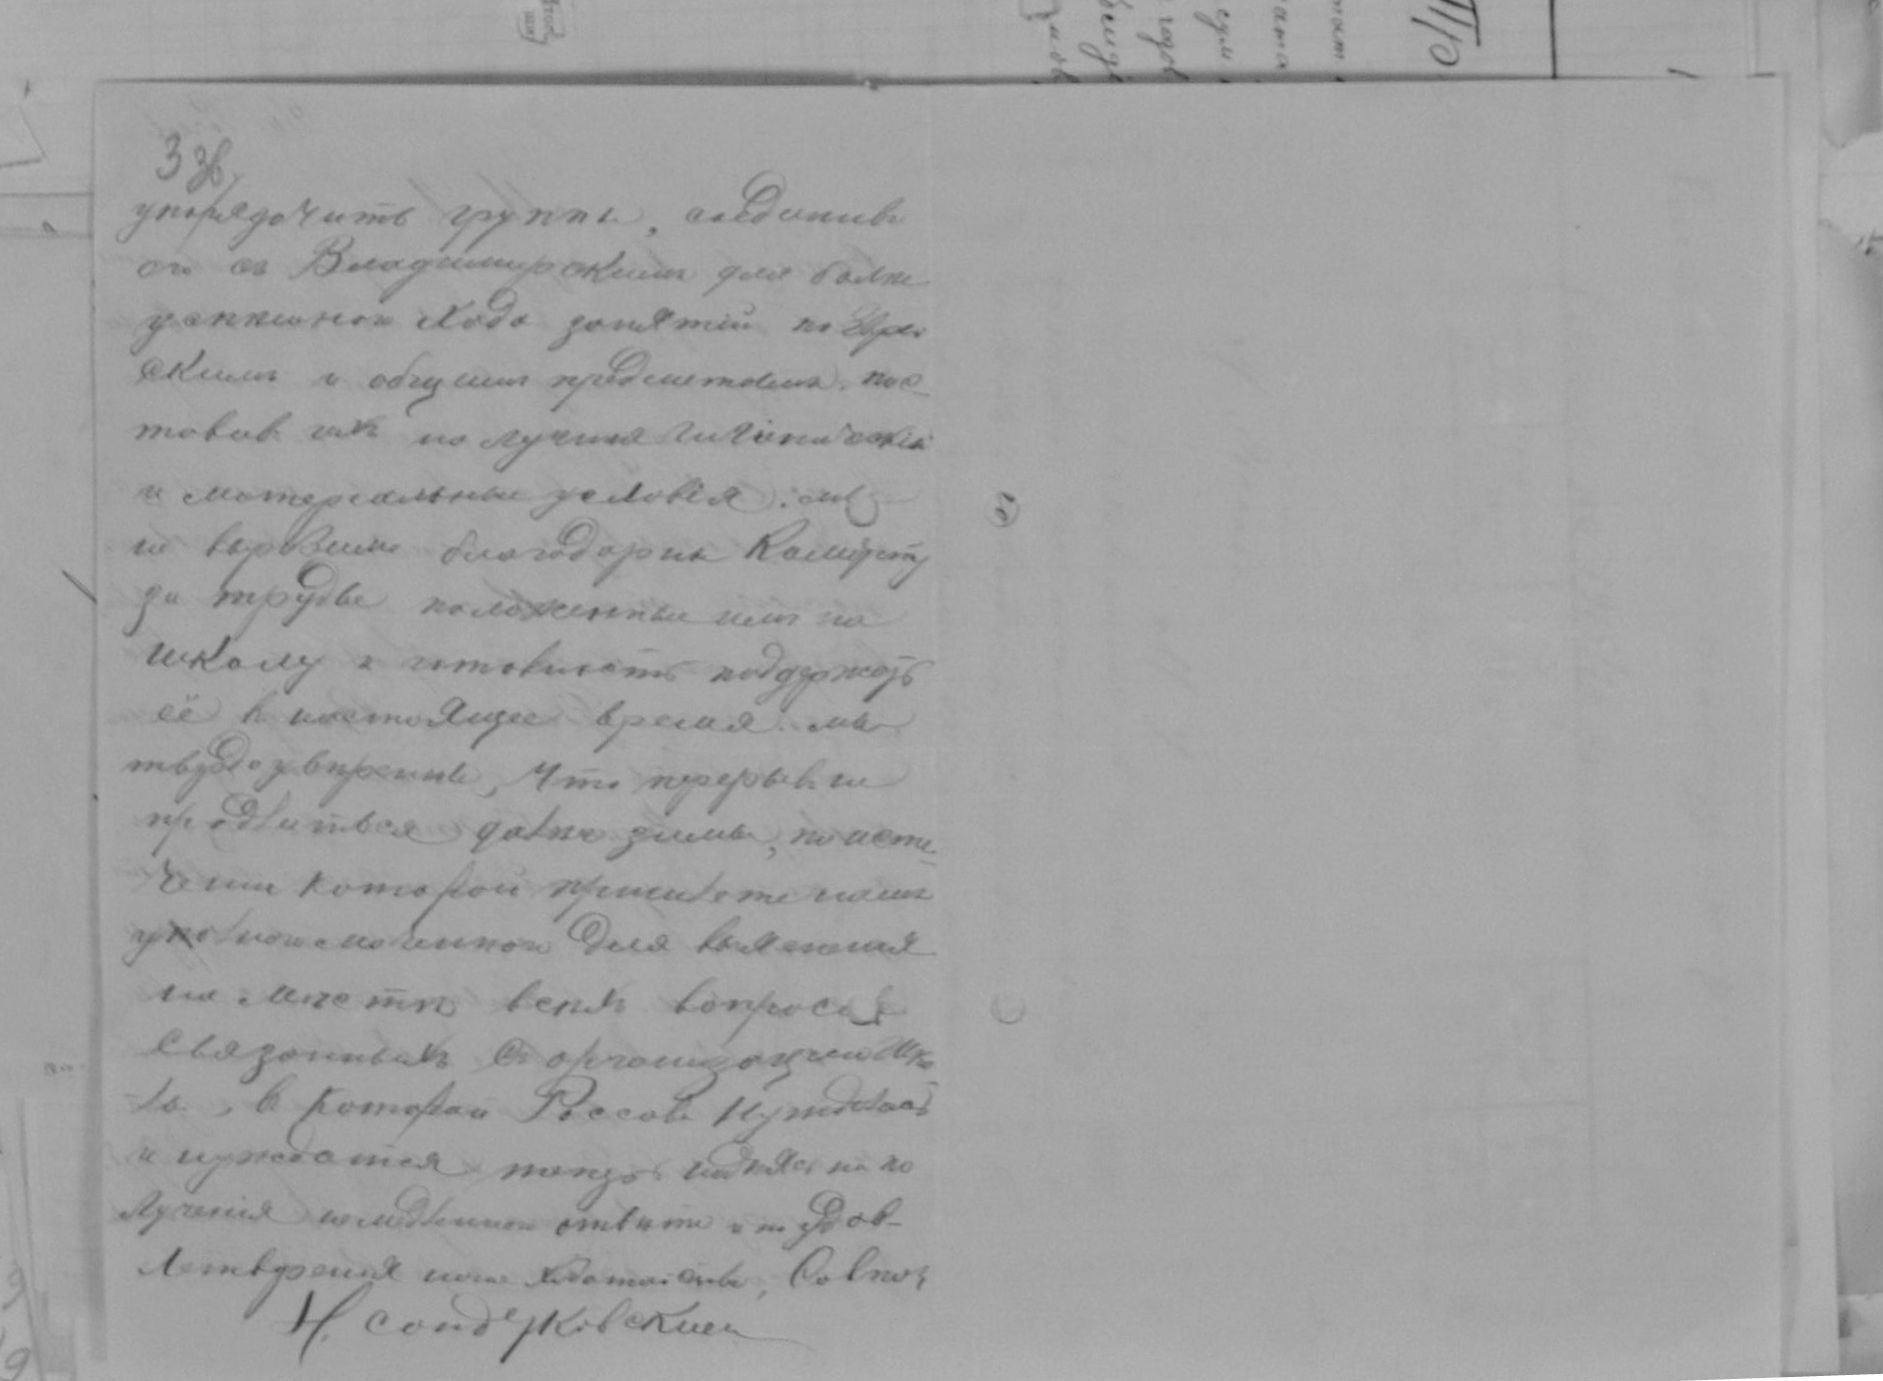 33б
упорядочить группы, соединив
ся съ Владимирскимъ для более
успешнои хода занятий по Евре
скимъ и общимъ предметамъ. пос-
товив ихъ на лучшия гигиенически
и материальные условiя. мы
не выразимо благодарны Комитету
за труды положенные имъ на
школу и готовность поддержать
её в настоящее время. мы
твердо уверенны, что перерыв не
продлиться далее зимы, по исте-
чении которой пришлете нашъ
уполномоченнои для выяснения
на месте всехъ вопросов
связанныхъ съ организацией шко
лы, в которой Россова нуждалась
и нуждается теперь надеясь на по
лучения немедленнои ответа и удов-
летворения наше ходатайства,
Н. Сандуковский